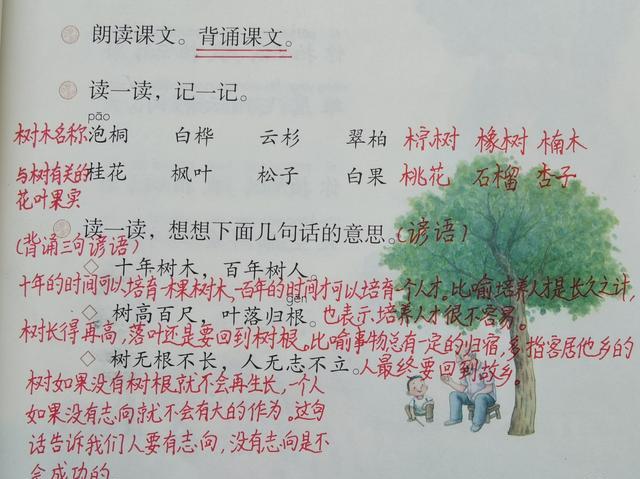 朗读课文。背诵课文。
读一读，记一记。
pāo
树木名称 泡桐 白桦 云杉 翠柏 柠树 橡树 楠木
与树有关的花叶果实 桂花 枫叶 松子 白果 桃花 石榴 杏子
读一读，想想下面几句话的意思。(谚语)
(背诵三句谚语)
十年树木，百年树人。
十年的时间可以培育一棵树木,百年的时间才可以培育一个人才。比喻培养人才是长久之计,
也表示培养人才很不容易。
gēn
树高百尺，叶落归根。
树长得再高,落叶还是要回到树根。比喻事物总有一定的归宿,多指客居他乡的
人最终要回到故乡。
树无根不长，人无志不立。
树如果没有树根就不会再生长,一个人
如果没有志向就不会有大的作为。这句
话告诉我们人要有志向,没有志向是不
会成功的